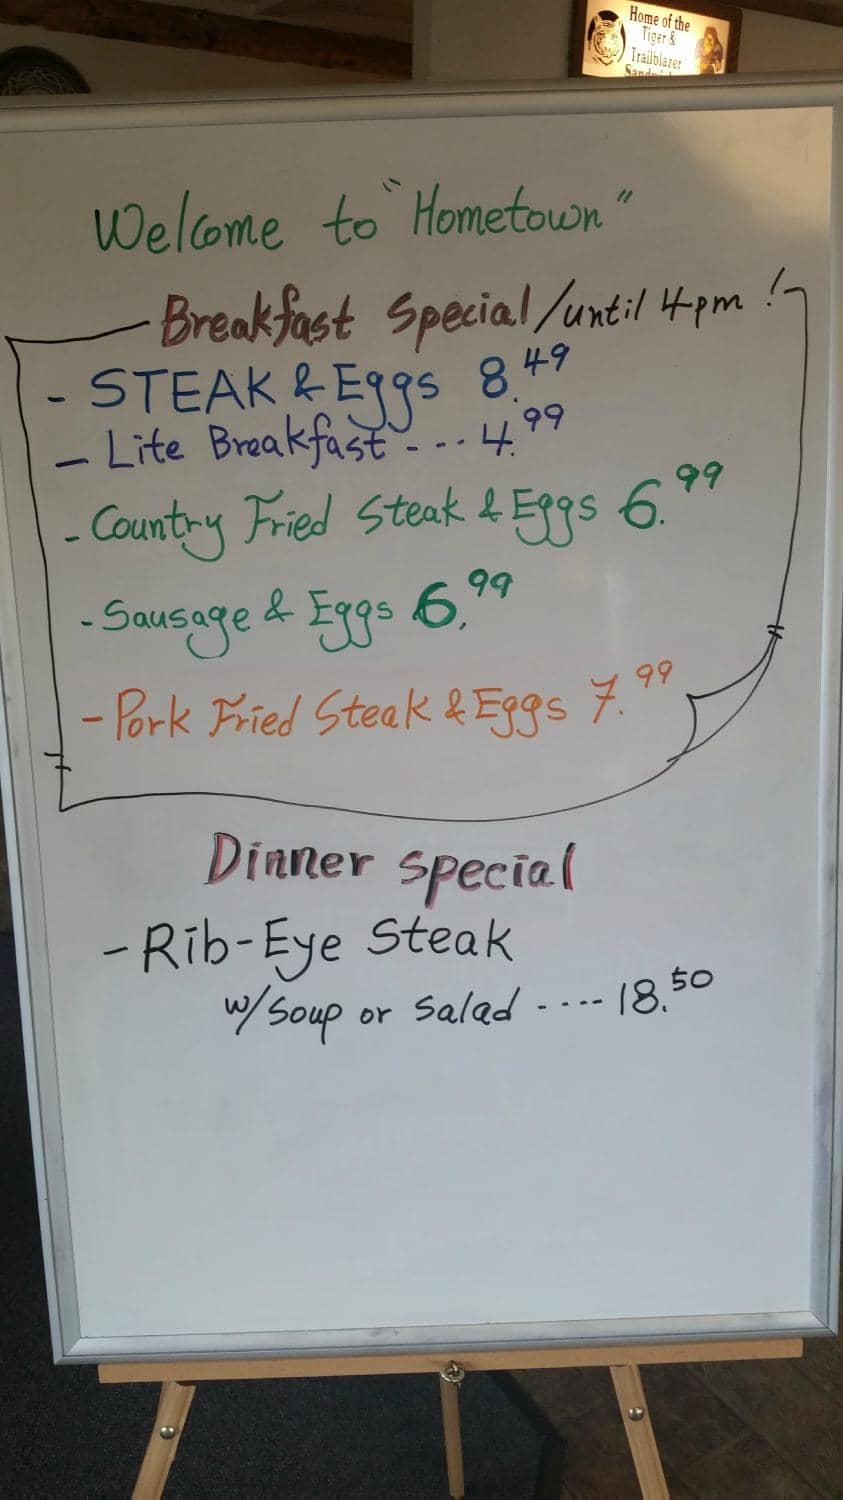 Home of the
Tiger &
Trailblazer
Welcome to "Hometown"
Breakfast Special/until 4pm!
- STEAK & Eggs 8.49
- Lite Breakfast --- 4.99
- Country Fried Steak & Eggs 6.99
- Sausage & Eggs 6.99
- Pork Fried Steak & Eggs 7.99
Dinner Special
- Rib-Eye Steak
w/Soup or Salad ---- 18.50